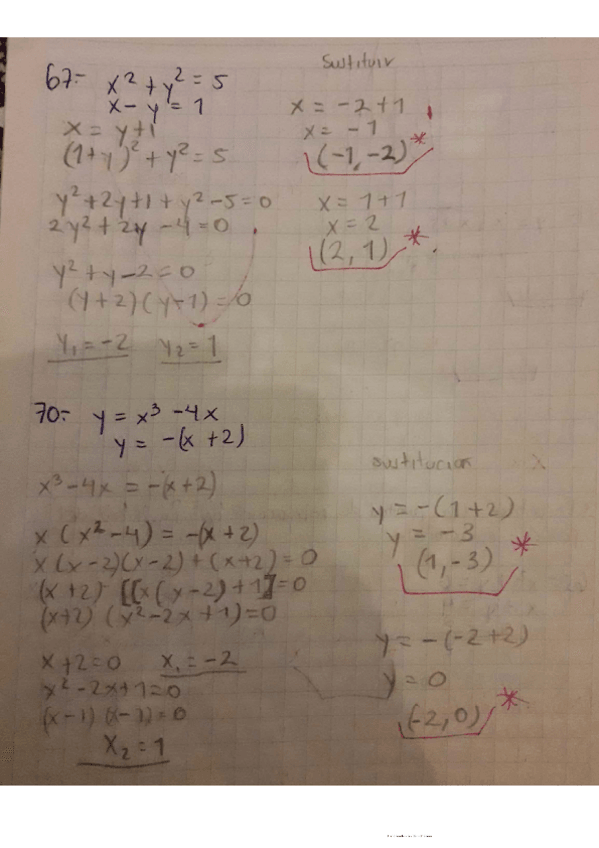 67.- x² + y² = 5
x - y = 1
x = y+1
(1+y)² + y² = 5
y² + 2y + 1 + y² - 5 = 0
2y² + 2y - 4 = 0
y² + y - 2 = 0
(y+2)(y-1) = 0
y₁ = -2 y₂ = 1
Sustituir
x = -2+1
x = -1
(-1, -2) *
x = 1+1
x = 2
(2, 1) *
70.- y = x³ - 4x
y = -(x+2)
x³ - 4x = -(x+2)
x(x² - 4) = -(x+2)
x(x-2)(x-2) + (x+2) = 0
(x+2) [(x(x-2) + 1] = 0
(x+2) (x² - 2x + 1) = 0
x+2 = 0 x₁ = -2
x² - 2x + 1 = 0
(x-1)(x-1) = 0
x₂ = 1
sustitucion
y = -(1+2)
y = -3
(1, -3) *
y = -(-2+2)
y = 0
(-2, 0) *